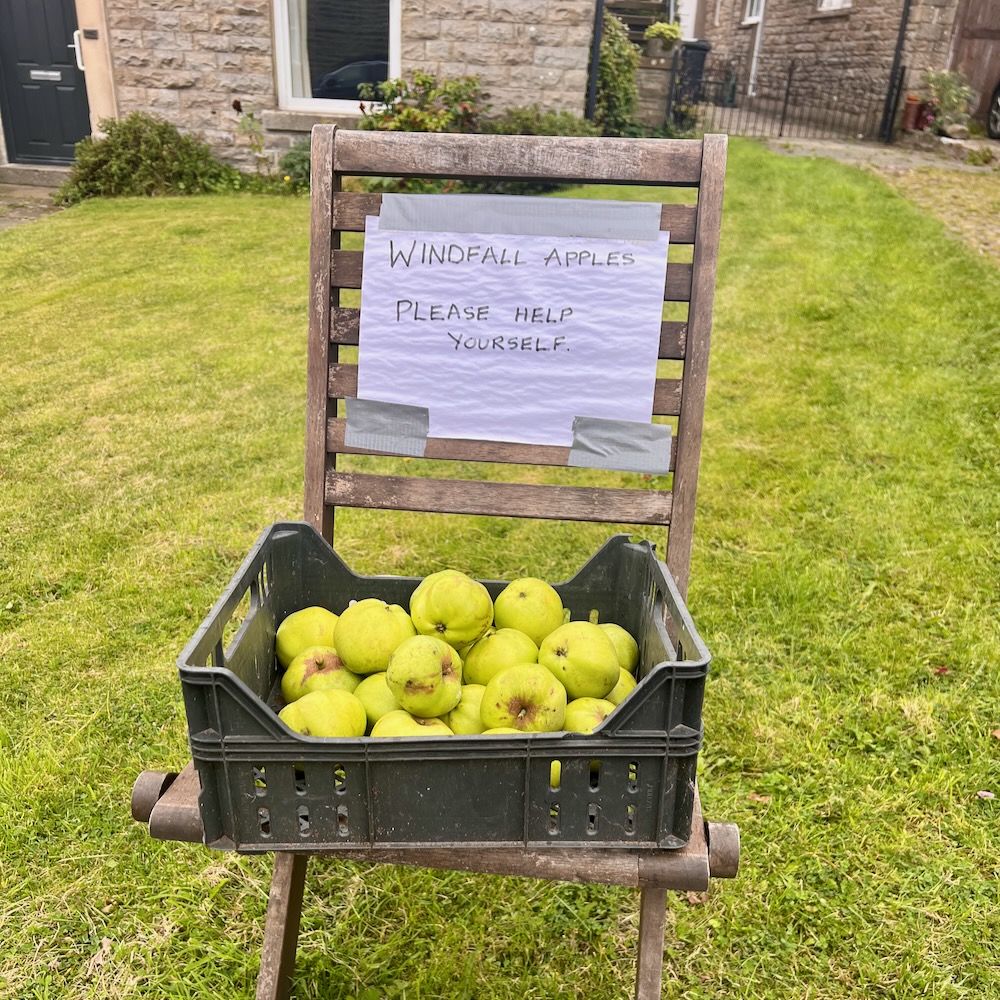 WINDFALL APPLES
PLEASE HELP
YOURSELF.